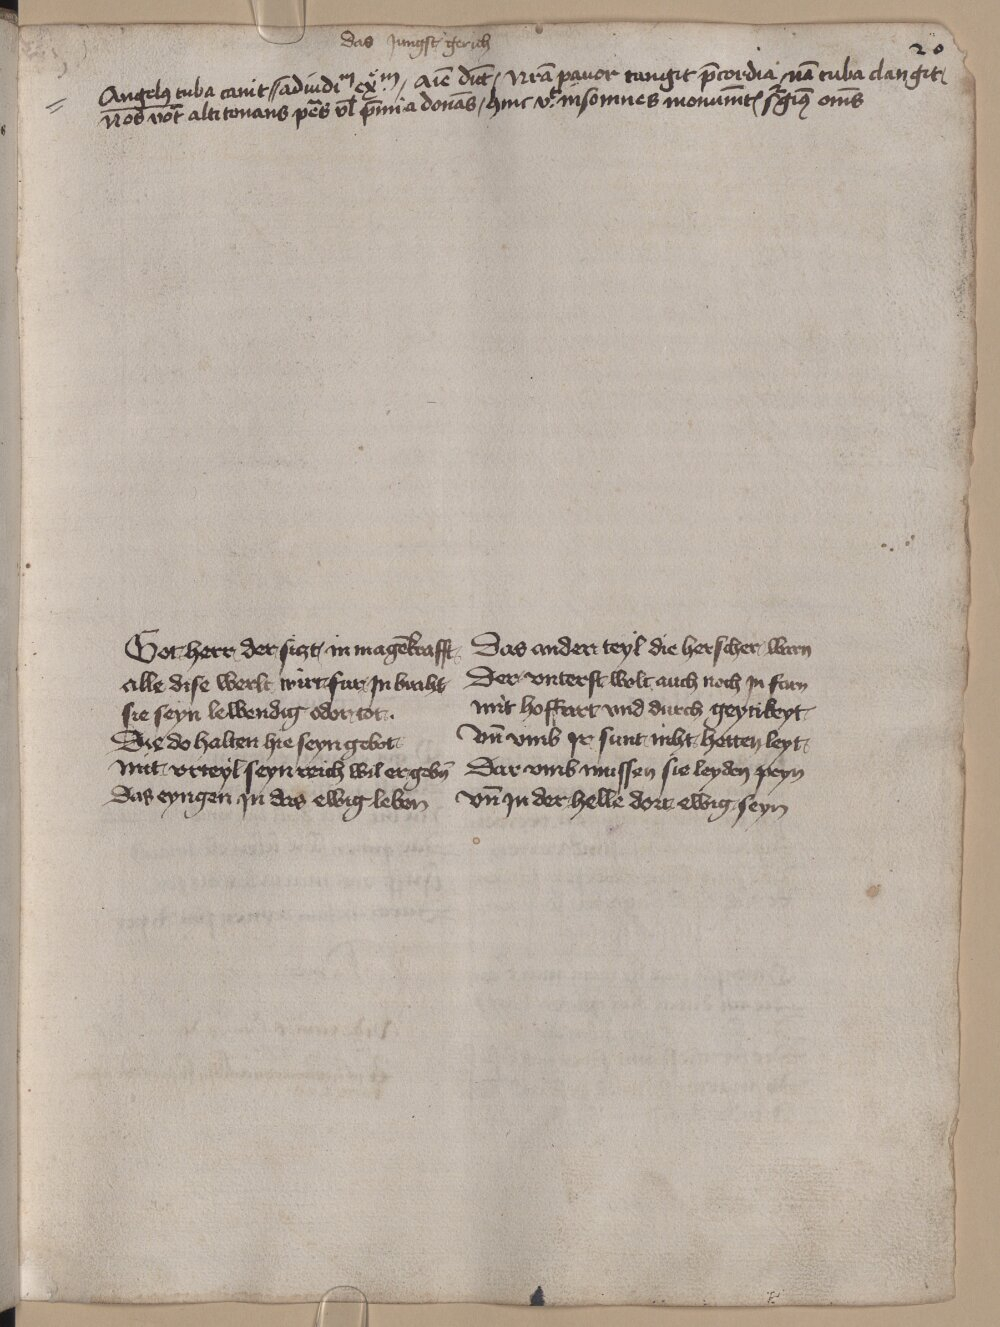 das Jungst gerich
20
Angelꝰ tuba canit / ad iudiᵐ exᵐ / Aīe dīct / Nrā pavor tangit p̄cordia nā tuba clangit
Nos vōt altitonans pēs vl̄ p̄mia donās / hinc insomnes monumēt oms
Got herr der sizt in magēkrafft
alle dise werlt wirt fur In braht
sie seyn lewendig oder tot.
Die do halten hie seyn gebot
mit vrteyl seyn reich wil er gebn̄
Das eyngen In das ewig leben
Das ander teyl die herscher warn
Der vnterst wolt auch noch In farn
mit hoffart vnd durch geytikeyt
vn̄ vmb Ir sunt niht hetten leyt
Dar vmb mussen sie leyden peyn
vn̄ In der helle dort ewig seyn